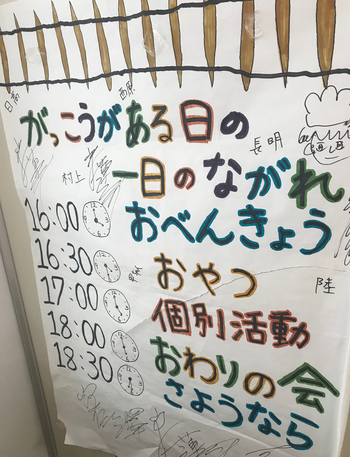 日高
西原
がっこうがある日の
長明
村上
一日のながれ
16:00 おべんきょう
16:30 おやつ
陸
17:00 個別活動
18:00 おわりの会
18:30 さようなら